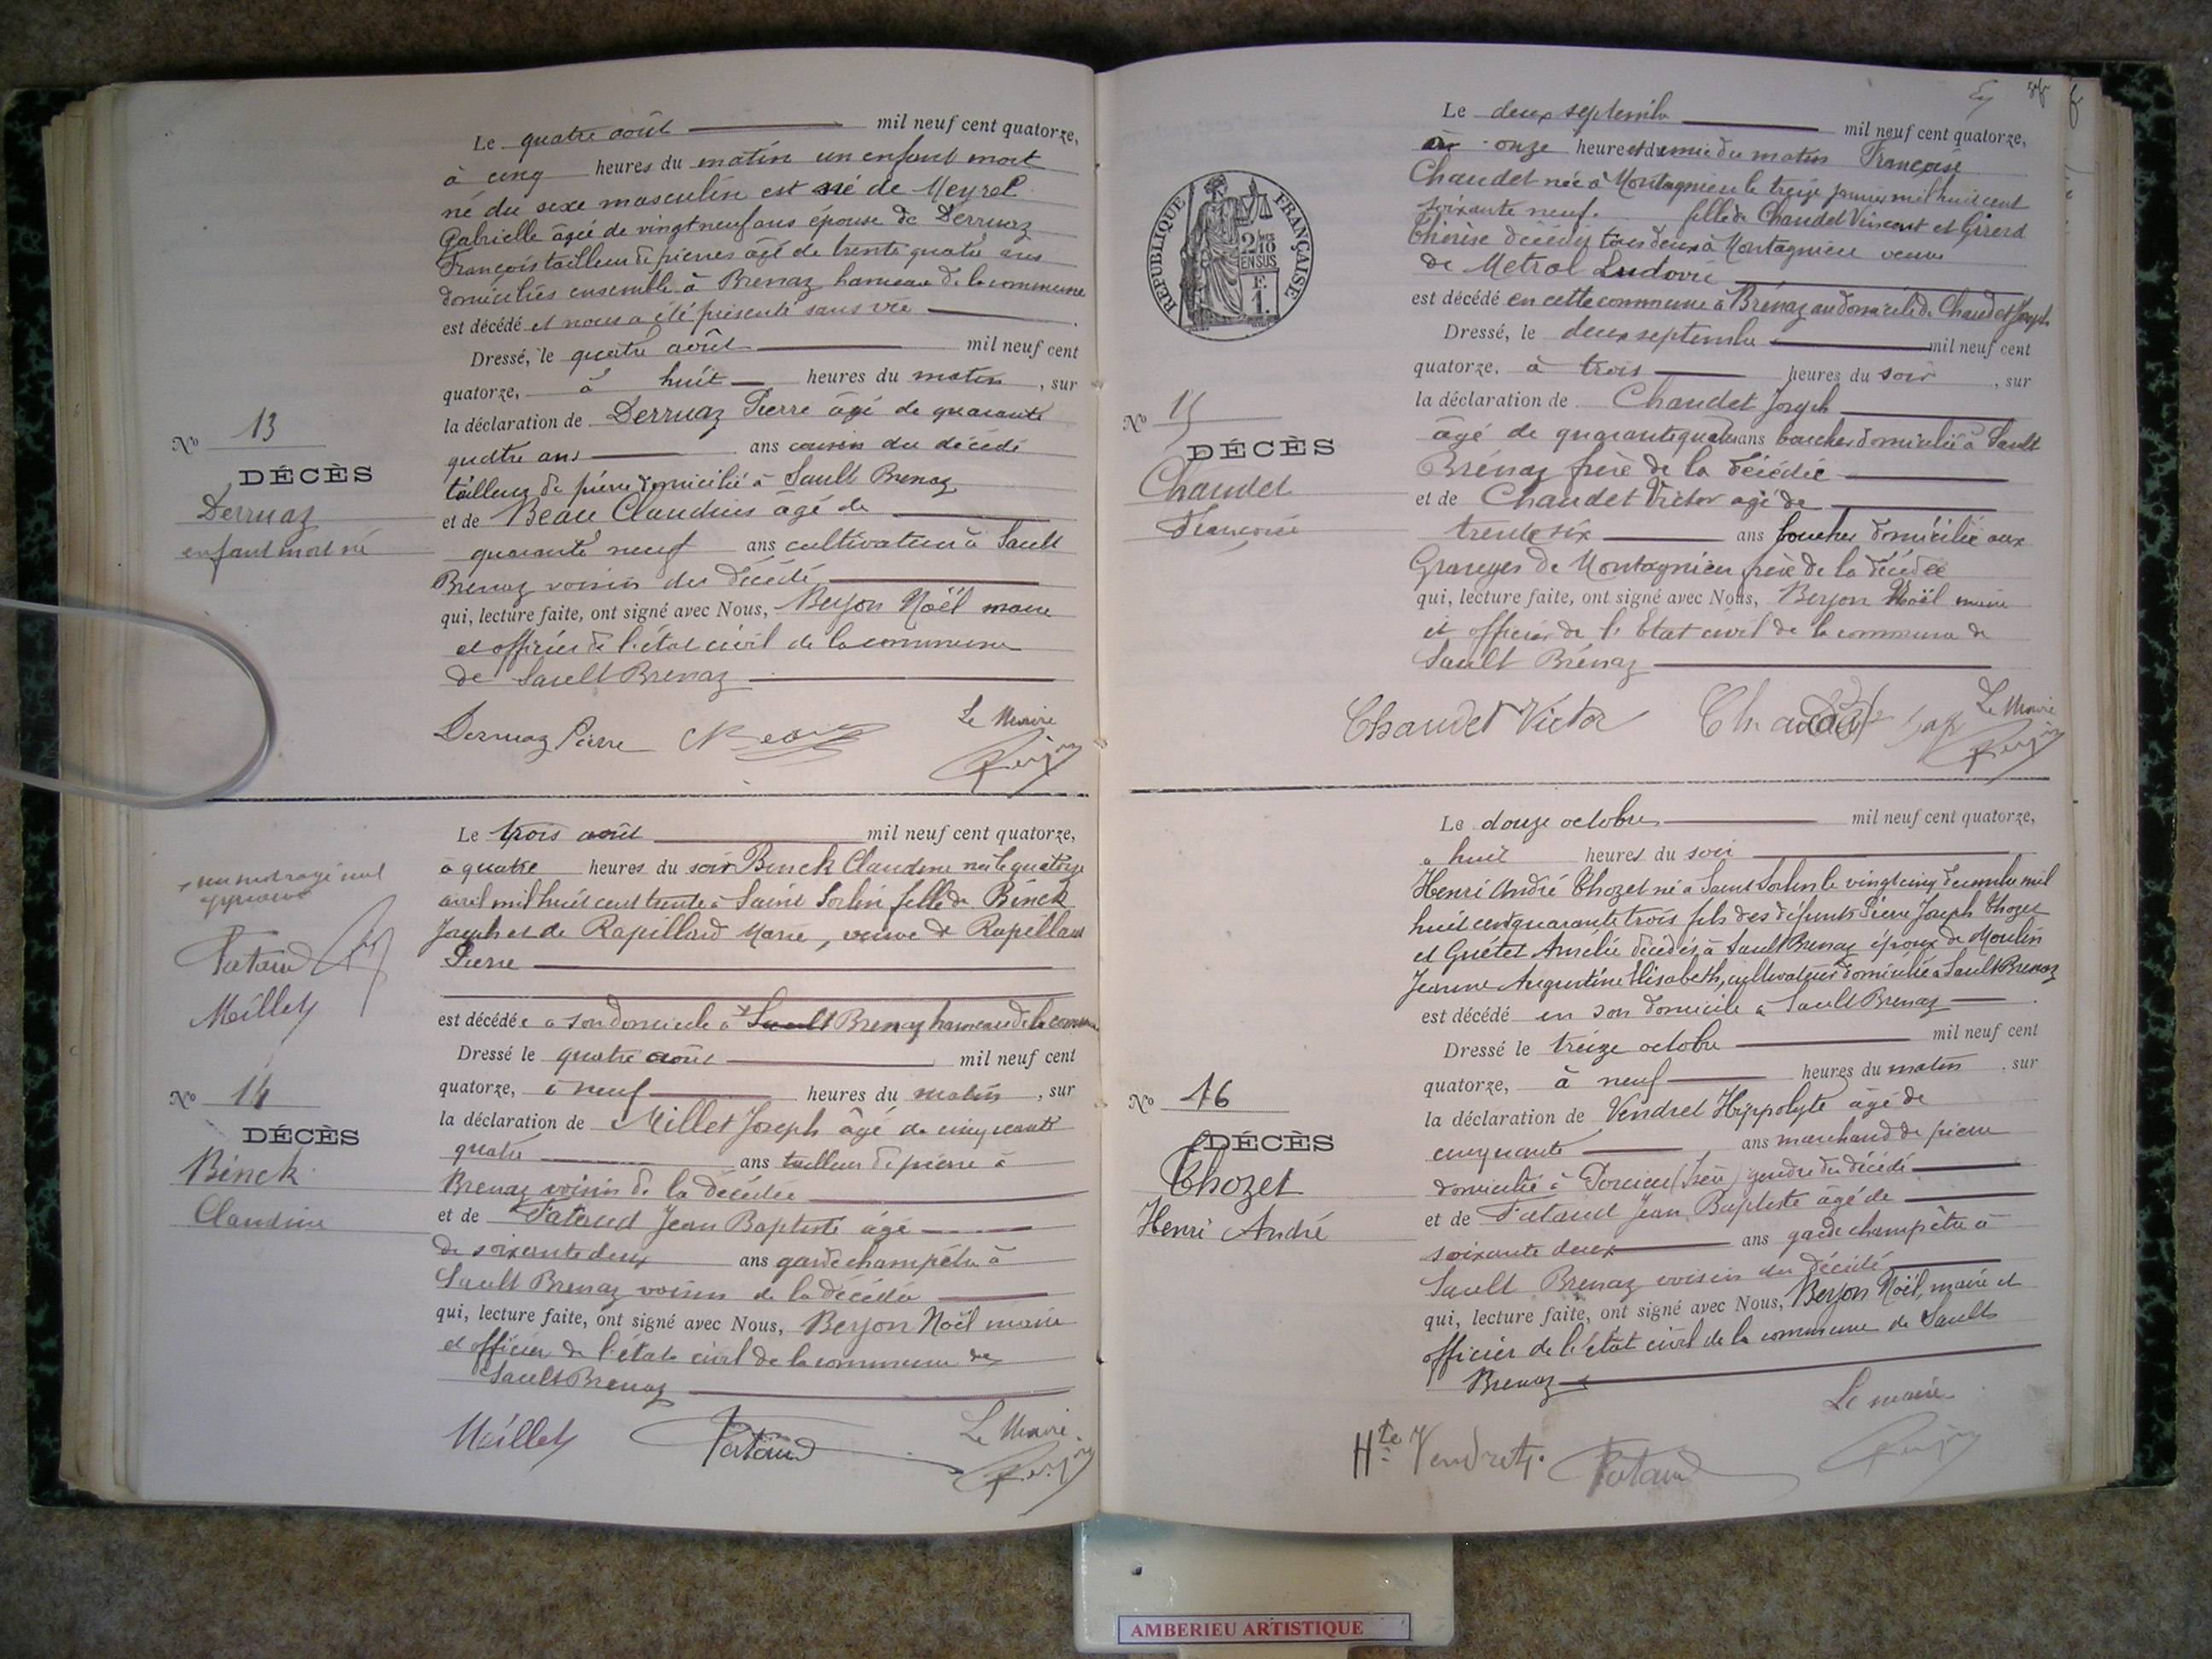 Le quatre août mil neuf cent quatorze,
à cinq heures du matin un enfant mort
né du sexe masculin est né de Meyrel
Gabrielle âgée de vingt neuf ans épouse de Derruaz
François tailleur de pierres âgé de trente quatre ans
domiciliés ensemble à Brenaz hameau de la commune
est décédé et nous a été présenté sans vie
Dressé, le quatre août mil neuf cent
quatorze, à huit heures du matin, sur
la déclaration de Derruaz Pierre âgé de quarante
quatre ans ans cousin du décédé
tailleur de pierre domicilié à Sault Brenaz
et de Beau Claudius âgé de
quarante neuf ans cultivateur à Sault
Brenaz voisin du décédé
qui, lecture faite, ont signé avec Nous, Berjon Noël maire
et officier de l'état civil de la commune
de Sault Brenaz
Derruaz Pierre Beau Le Maire
Berjon
No 13
DÉCÈS
Derruaz
enfant mort né
Le trois août mil neuf cent quatorze,
à quatre heures du soir Binck Claudine née le quatorze
avril mil huit cent trente à Saint Sorlin fille de Binck
Joseph et de Rapillard Marie, veuve de Rapillard
Pierre
est décédée à son domicile à Sault Brenaz hameau de la commune
Dressé le quatre août mil neuf cent
quatorze, à neuf heures du matin, sur
la déclaration de Millet Joseph âgé de cinquante
quatre ans tailleur de pierre à
Brenaz voisin de la décédée
et de Pataud Jean Baptiste âgé
de soixante deux ans garde champêtre à
Sault Brenaz voisin de la décédée
qui, lecture faite, ont signé avec Nous, Berjon Noël maire
et officier de l'état civil de la commune de
Sault Brenaz
Meillet Pataud Le Maire
Berjon
un mot rayé nul
approuvé
Pataud
Meillet
No 14
DÉCÈS
Binck
Claudine
Le deux septembre mil neuf cent quatorze,
à onze heures et demie du matin Françoise
Chaudet née à Montagnieu le treize janvier mil huit cent
soixante neuf. fille de Chaudet Vincent et Girerd
Thérèse décédés tous deux à Montagnieu veuve
de Metral Ludovic
est décédé en cette commune à Brénaz au domicile de Chaudet Joseph
Dressé, le deux septembre mil neuf cent
quatorze. à trois heures du soir, sur
la déclaration de Chaudet Joseph
âgé de quarante quatre ans boucher domicilié à Sault
Brénaz frère de la décédée
et de Chaudet Victor agé de
trente six ans boucher domicilié aux
Granges de Montagnieu frère de la décédée
qui, lecture faite, ont signé avec Nous, Berjon Noël maire
et officier de l'Etat civil de la commune de
Sault Brénaz
Chaudet Victor Chaudet Le Maire
Berjon
RÉPUBLIQUE FRANÇAISE
2/10 EN SUS
F. 1.
No 15
DÉCÈS
Chaudet
Françoise
Le douze octobre mil neuf cent quatorze,
à huit heures du soir
Henri André Thozet né à Saint Sorlin le vingt cinq decembre mil
huit cent quarante trois fils des défunts Pierre Joseph Thozet
et Guétet Amélie décédés à Sault Brenaz époux de Moulin
Jeanne Augustine Elisabeth, cultivateur domicilié à Sault Brenaz
est décédé en son domicile à Sault Brenaz
Dressé le treize octobre mil neuf cent
quatorze, à neuf heures du matin, sur
la déclaration de Vendret Hippolyte âgé de
cinquante ans marchand de pierre
domicilié à Porcieu (Isère) gendre du décédé
et de Pataud Jean Baptiste âgé de
soixante deux ans garde champêtre à
Sault Brenaz voisin du décédé
qui, lecture faite, ont signé avec Nous, Berjon Noël, maire et
officier de l'état civil de la commune de Sault
Brenaz
Le maire
Hte Vendret. Pataud Berjon
No 16
DÉCÈS
Thozet
Henri André
AMBERIEU ARTISTIQUE